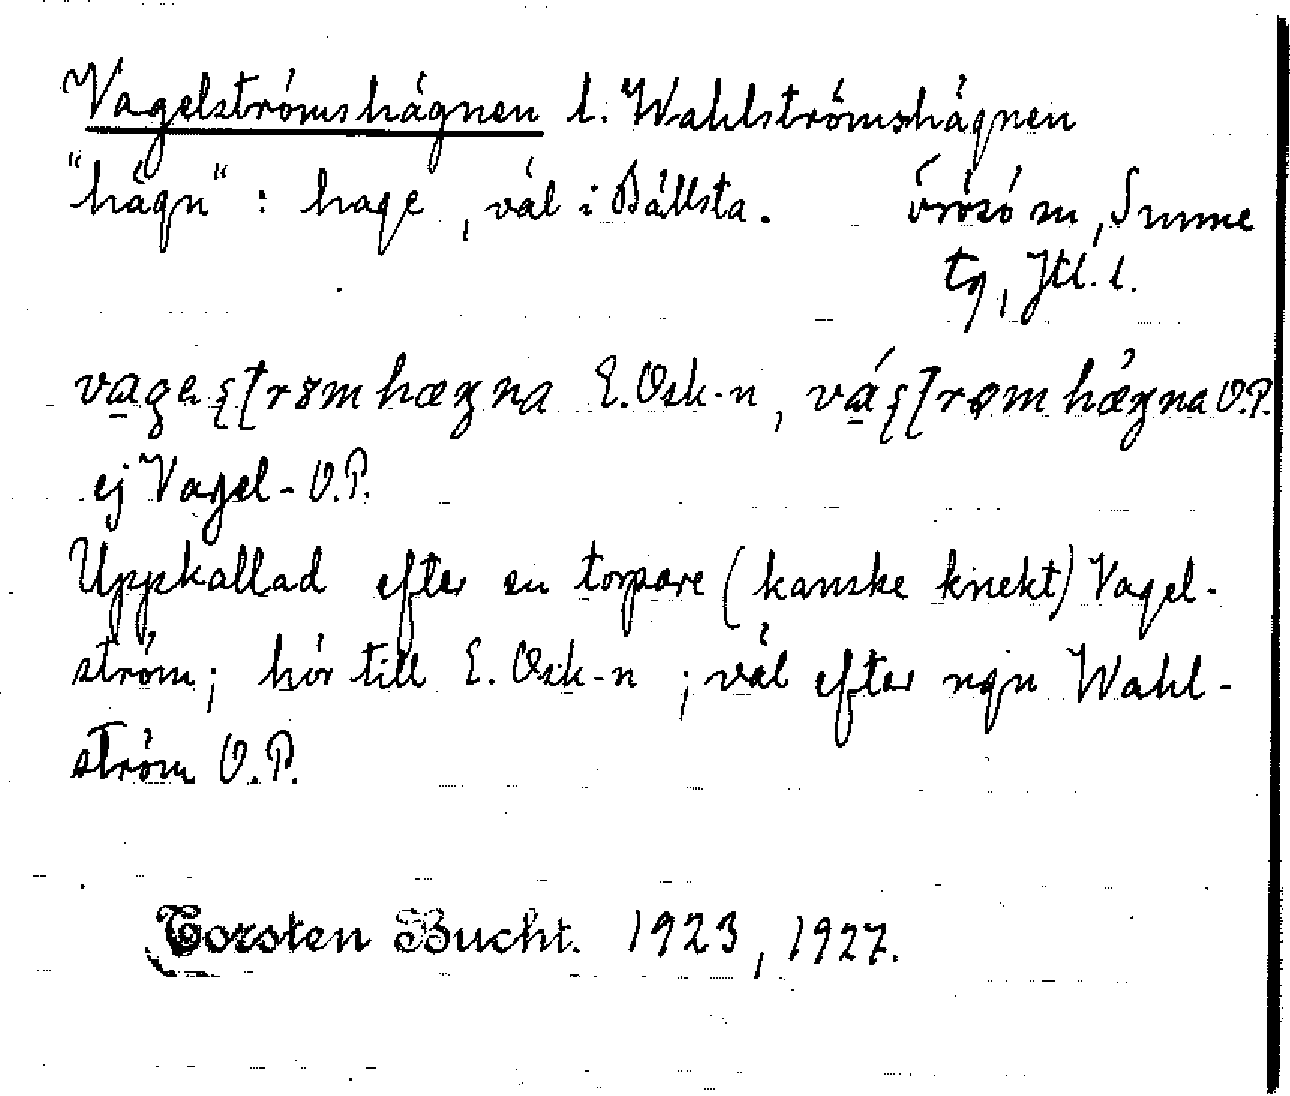 Vagelströmshägnen l. Wahlströmshägnen
"hägn" : hage, väl i Bällsta. Frösö sn, Sunne
tg, Jtl. l.
E. Osk-n, O.P.
ej Vagel- O.P.
Uppkallad efter en torpare (kanske knekt) Vagel-
ström; hör till E. Osk-n ; väl efter ngn Wahl-
ström O.P.
Torsten Bucht. 1923, 1927.